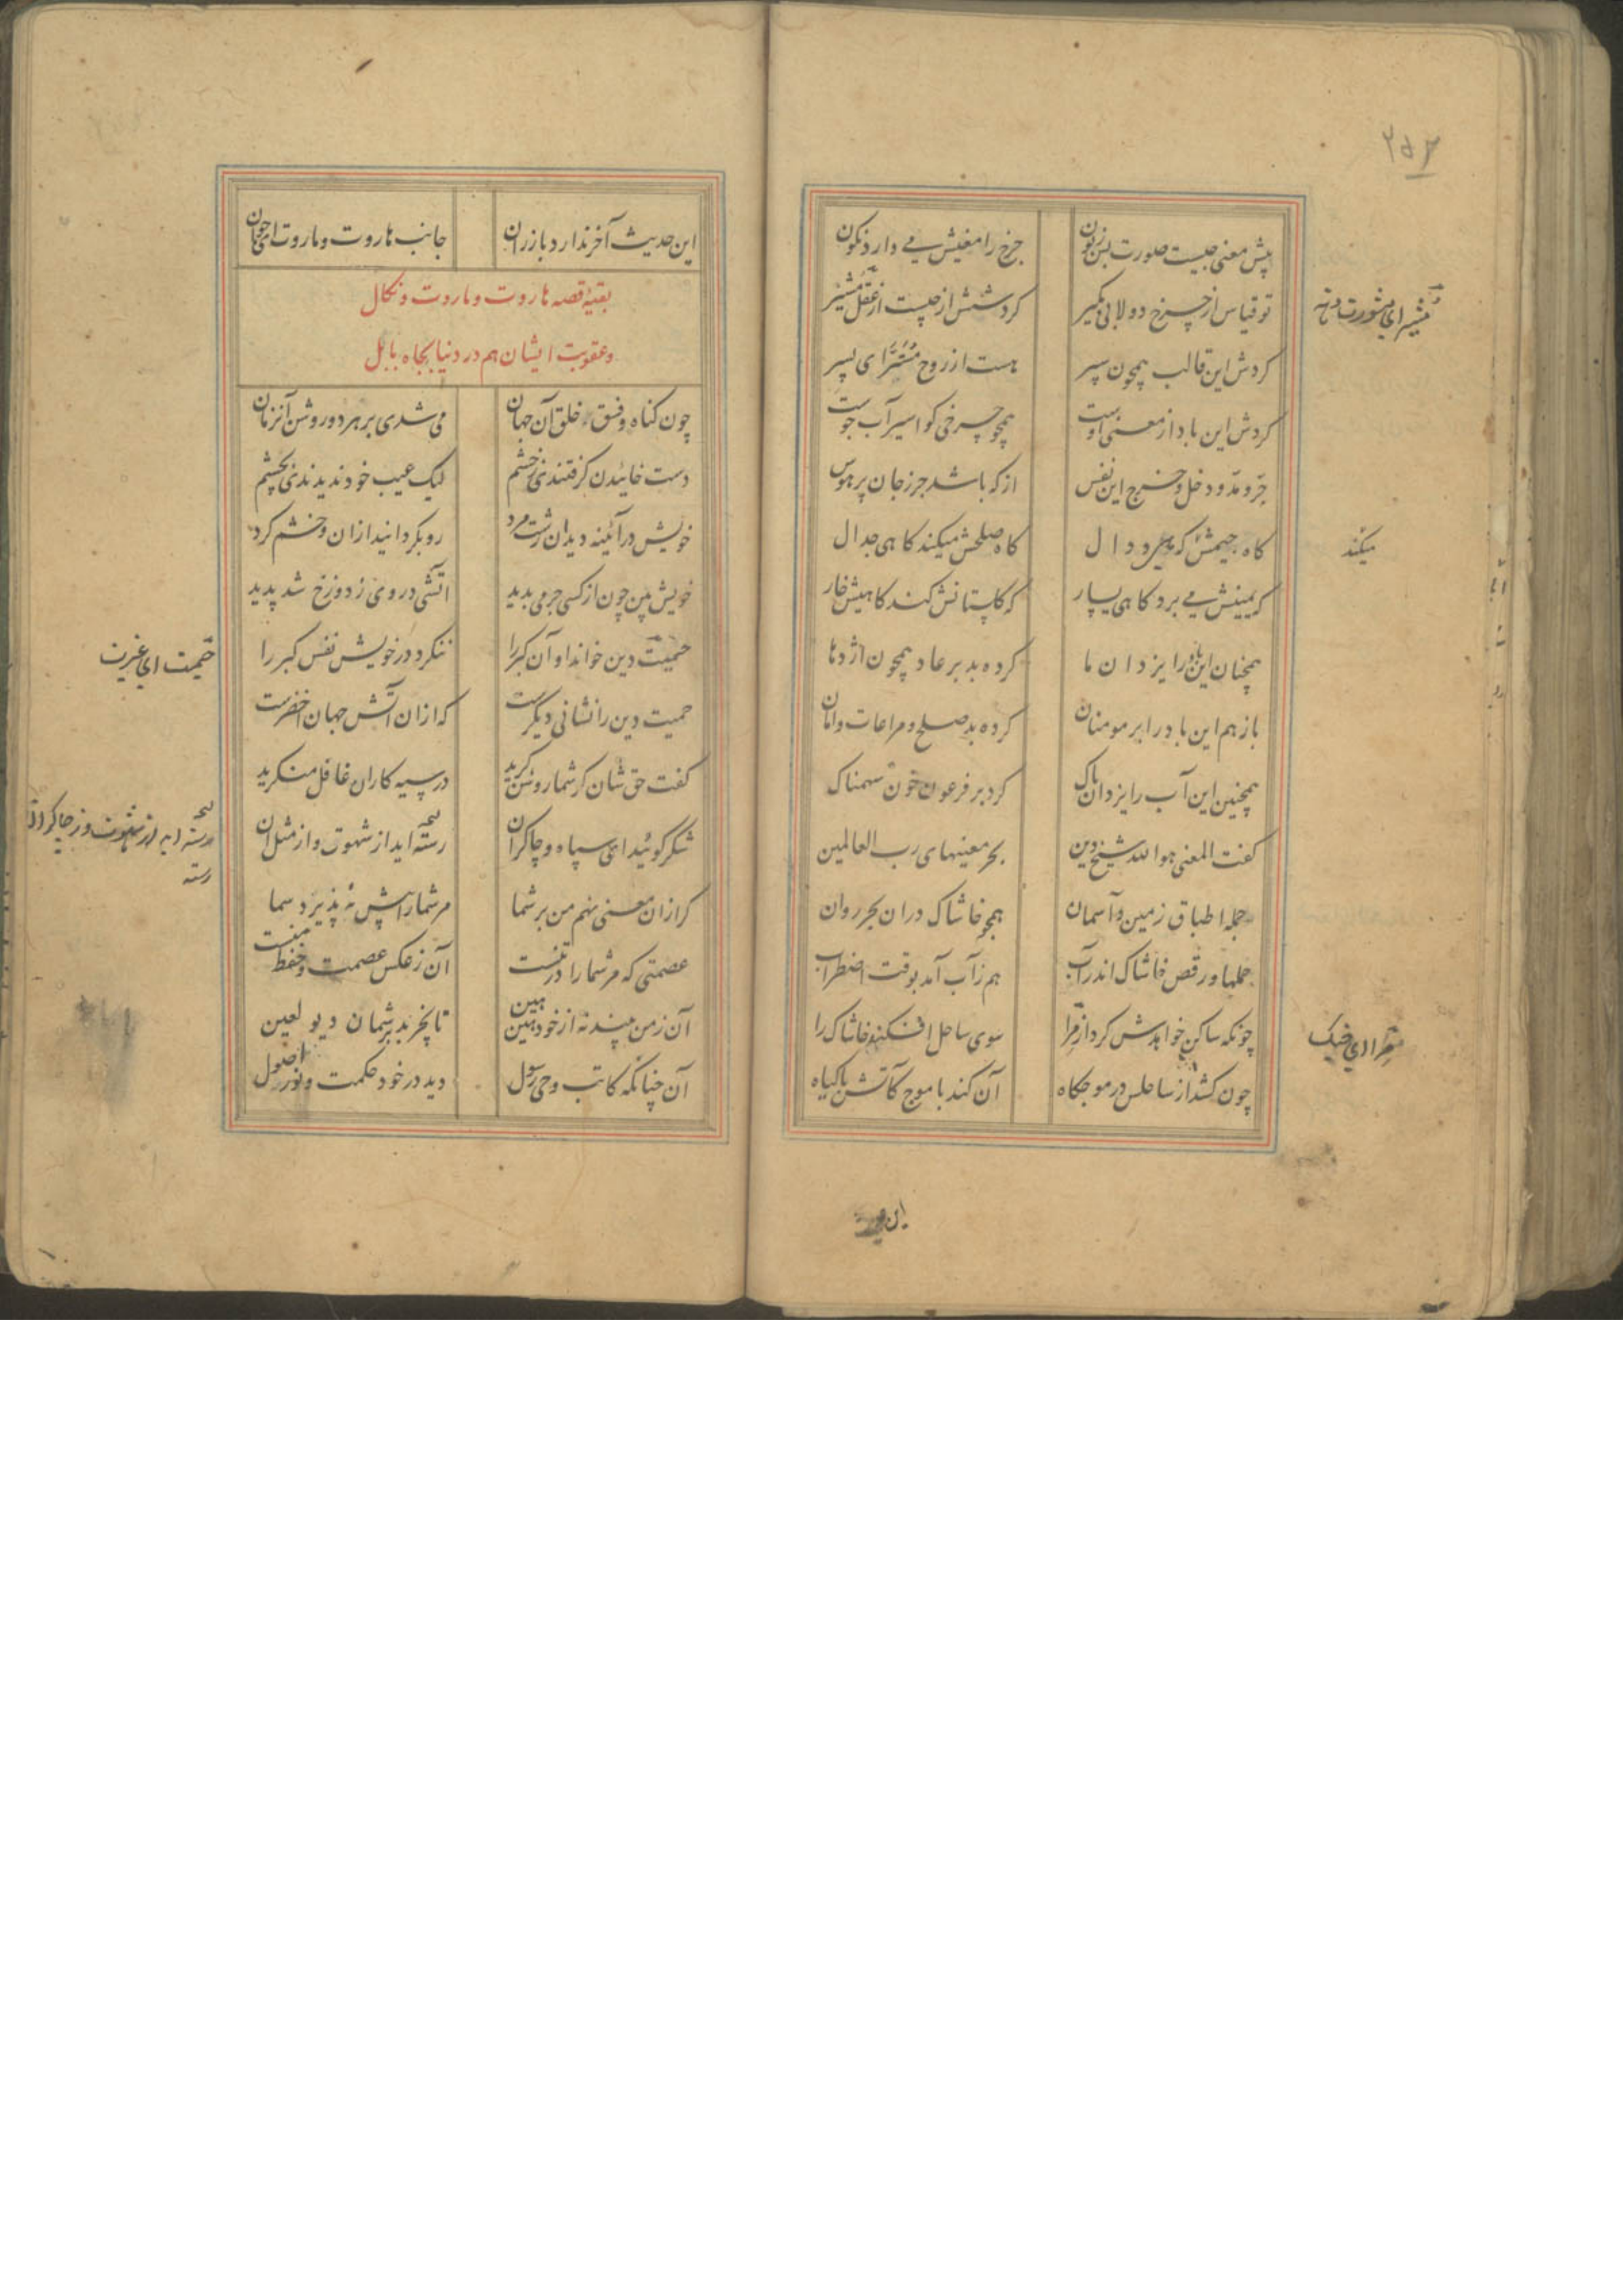 ۲۵۲
پیش معنی چیست صورت بس زبون
چرخ را معنیش می دارد نکون
تو قیاس از چرخ دولابی بکیر
کردشش از چیست از عقل مشیر
مشیر ای مشورت دهنده
کردش این قالب همچون سپر
هست از روح مستر ای پسر
کردش این باد از معنی اوست
همچو چرخی کو اسیر آب جوست
جر و مد و دخل و خرج این نفس
از که باشد جز ز جان پر هوس
کاه جیمش که میرود دال
کاه صلحش میکند کاهی جدال
میکند
که یمینش می برد کاهی یسار
که کلستانش کند کاهیش خار
همچنان این باد را یزدان ما
کرده بد بر عاد همچون اژدها
باز هم این باد را بر مومنان
کرده بد صلح و مراعات و امان
همچنین این آب را یزدان پاک
کرد بر فرعون خون سهمناک
کفت المعنی هو الله شیخ دین
بحر معنیهای رب العالمین
جمله اطباق زمین و آسمان
همچو خاشاک دران بحر روان
حملها و رقص خاشاک اندر آب
هم ز آب آمد بوقت اضطراب
چونکه ساکن خواهدش کرد از مرا
سوی ساحل افکند خاشاک را
مرا ای جنک
چون کشد از ساحلس در موجکاه
آن کند با موج کآتش با کیاه
این حدیث آخر ندارد باز ران
جانب هاروت و ماروت ای جوان
بقیه قصه هاروت و ماروت و نکال
و عقوبت ایشان هم در دنیا بچاه بابل
چون کناه و فسق خلق آن جهان
می شدی بر هر دو روشن آنزمان
دست خائیدن کرفتندی ز خشم
لیک عیب خود ندیدندی بچشم
خویش در آئینه دید آن زشت مرد
رو بکردانید ازان و خشم کرد
خویش بین چون از کسی جرمی بدید
آتشی در وی ز دوزخ شد پدید
حمیت دین خواند او آن کبر را
ننکرد در خویش نفس کبر را
حمیت ای غیرت
حمیت دین را نشانی دیکرست
که ازان آتش جهان اخضرست
کفت حق شان کر شما روشن کرید
در سیه کاران غافل منکرید
شکر کوئید ای سپاه و چاکران
رسته اید از شهوت و از مثل آن
کر ازان معنی نهم من بر شما
مر شما را پیش نه پذیرد سما
عصمتی که مر شما را در تنست
آن ز عکس عصمت و حفظ منست
آن ز من بینید نه از خود هین هین
تا نچربد بر شمان دیو لعین
آن چنانکه کاتب وحی رسول
دید در خود حکمت و نور اصول